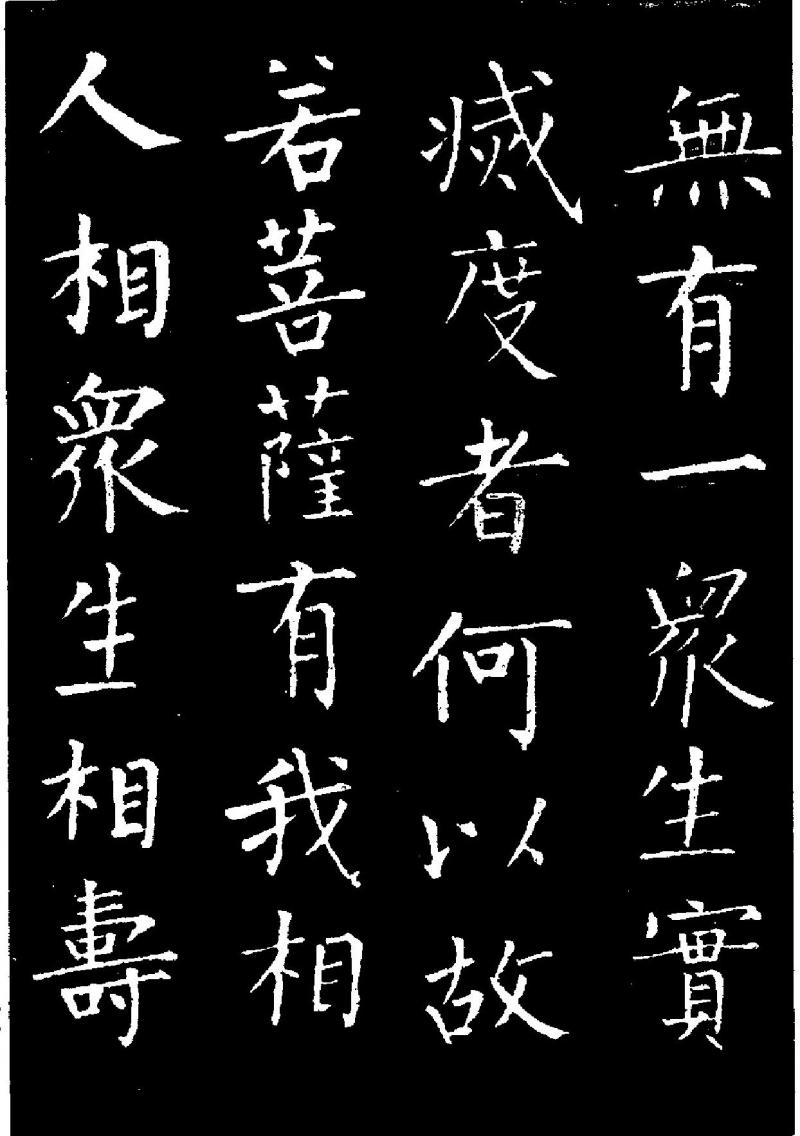 無有一眾生實
滅度者何以故
若菩薩有我相
人相眾生相壽